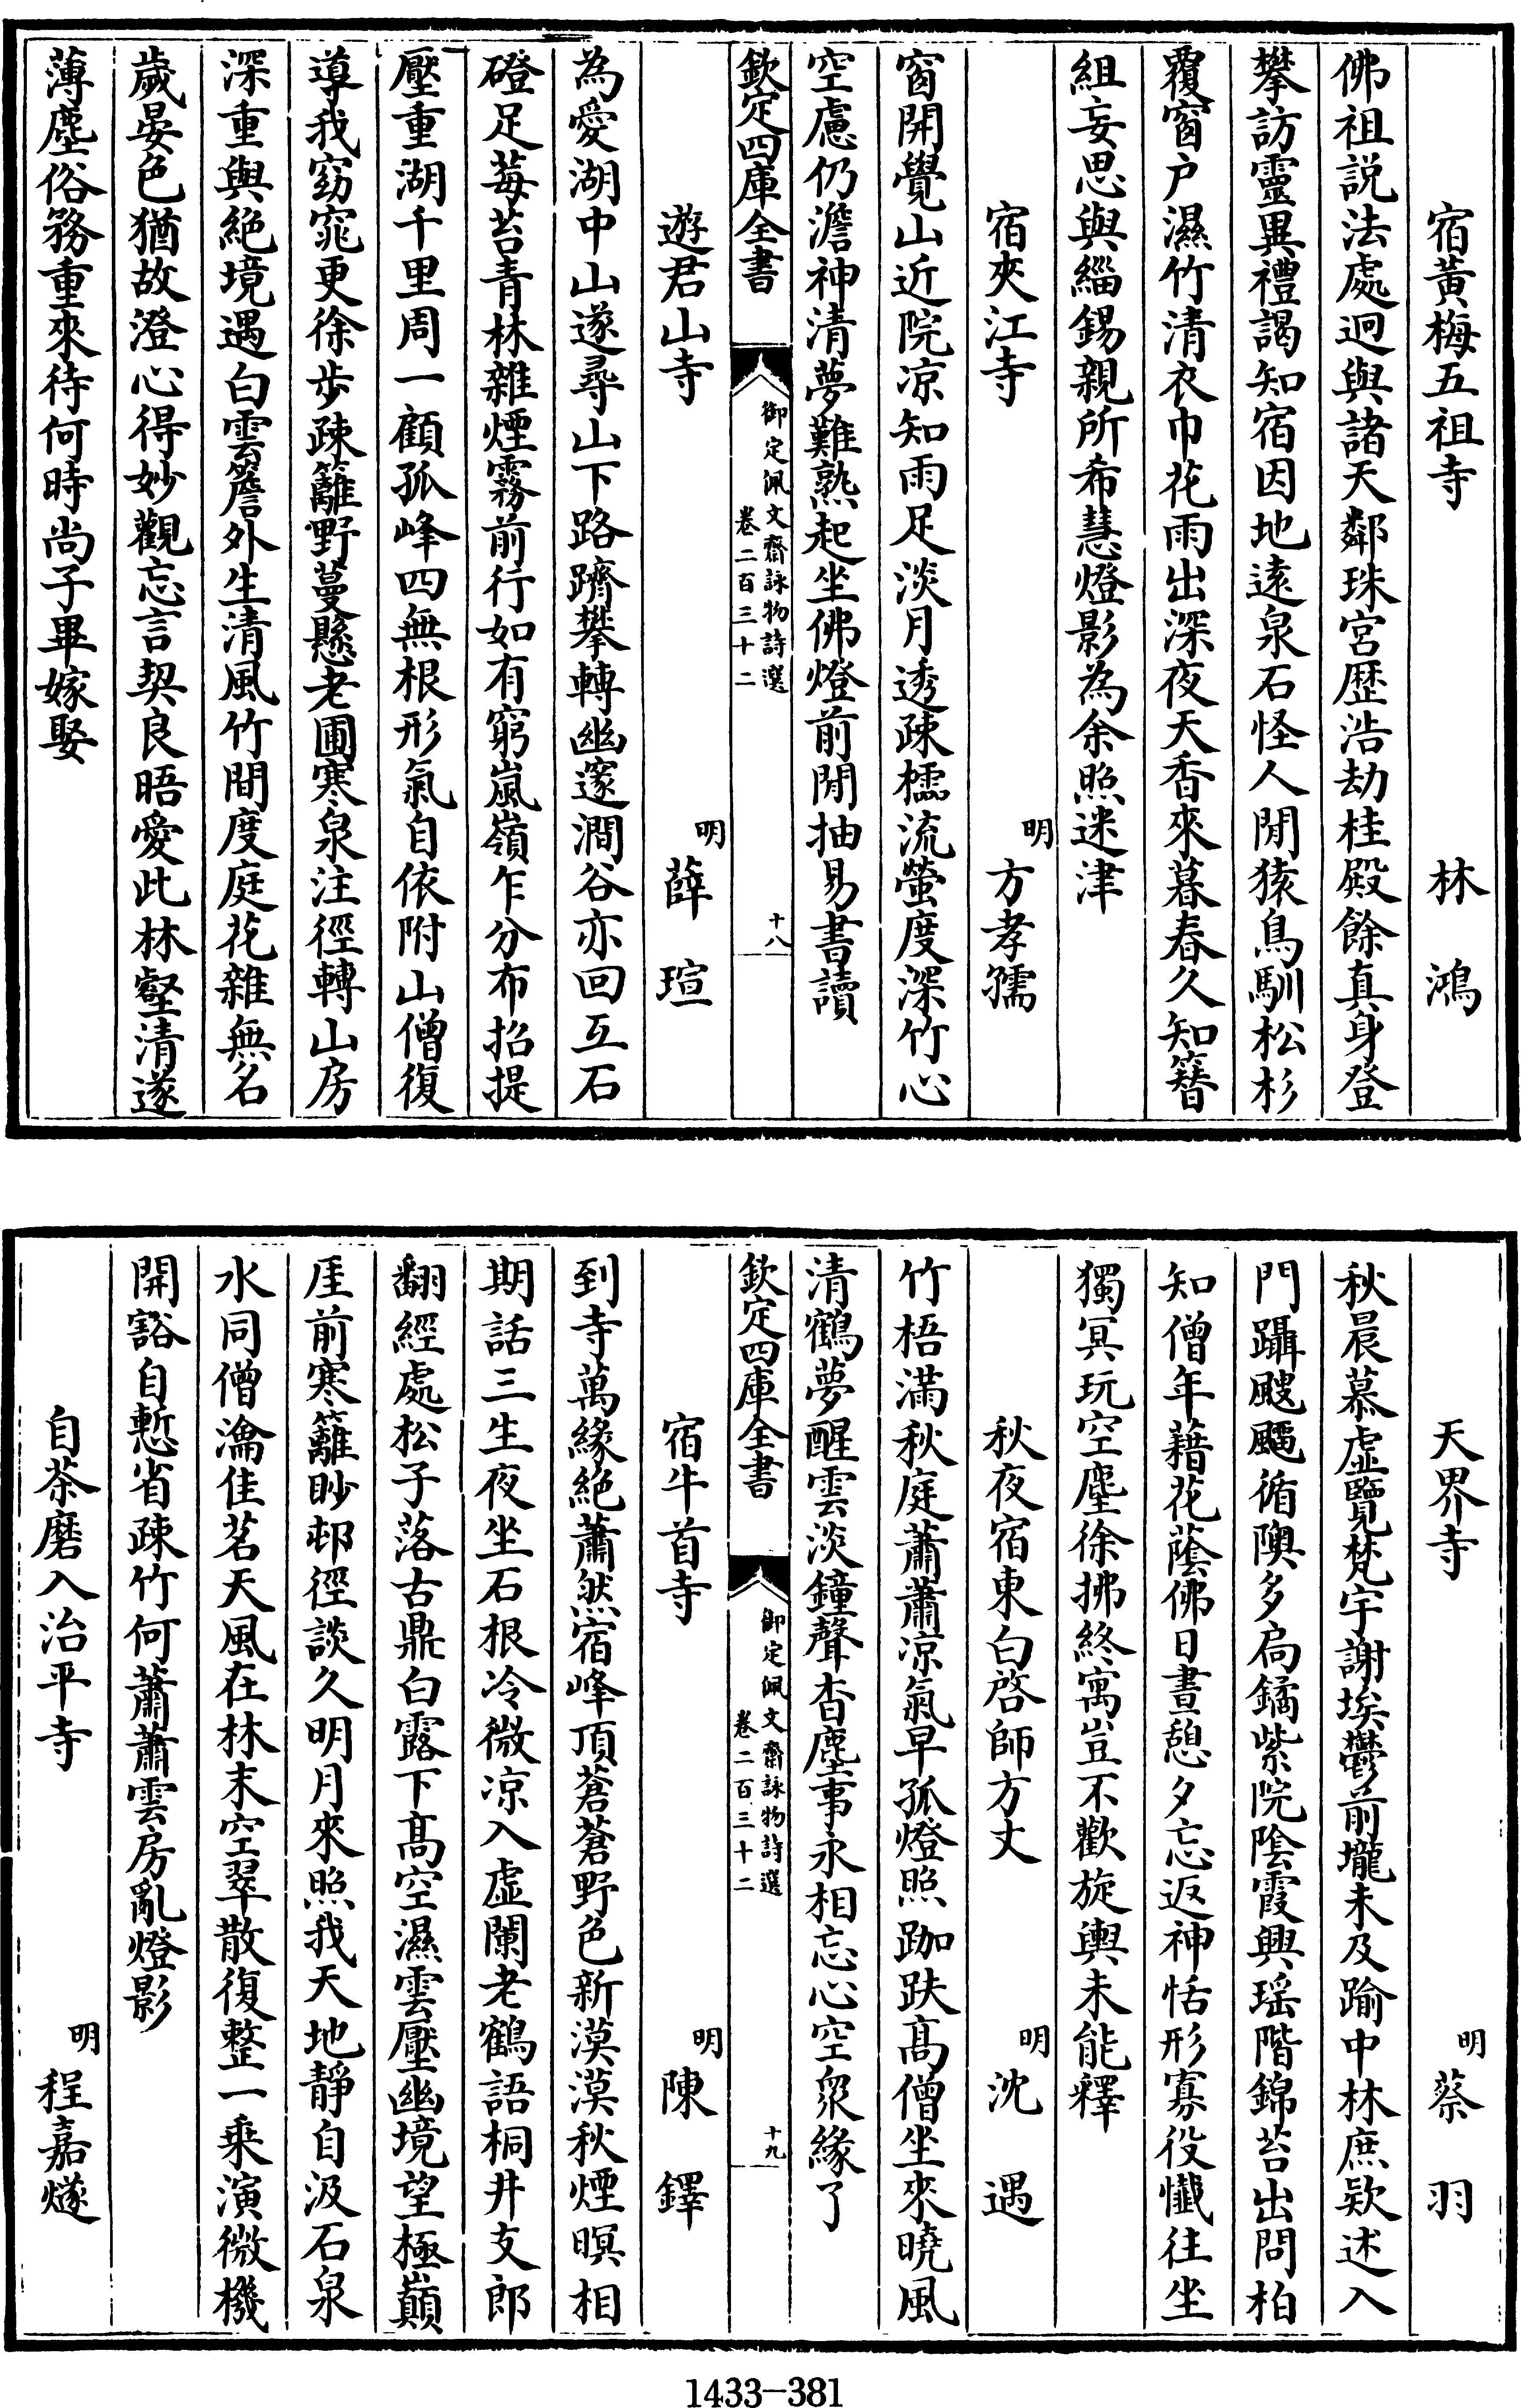 宿黄梅五祖寺　林鴻
佛祖説法處迥與諸天鄰珠宮歴浩劫桂殿餘真身登
攀訪靈異禮謁知宿因地逺泉石怪人閒猿鳥馴松杉
覆窗户濕竹清衣巾花雨出深夜天香來暮春久知簪
組妄思與緇錫親所希慧燈影為余照迷津
宿夾江寺　明方孝孺
窗開覺山近院凉知雨足淡月透疎櫺流螢度深竹心
空慮仍澹神清夢難熟起坐佛燈前閒抽易書讀
欽定四庫全書
御定佩文齋詠物詩選
卷二百三十二
十八
遊君山寺　明薛瑄
為愛湖中山遂尋山下路躋攀轉幽邃澗谷亦回互石
磴足莓苔青林雜煙霧前行如有窮嵐嶺乍分布招提
壓重湖千里周一顧孤峰四無根形氣自依附山僧復
導我窈窕更徐步疎籬野蔓懸老圃寒泉注徑轉山房
深重與絶境遇白雲簷外生清風竹間度庭花雜無名
歲晏色猶故澄心得妙觀忘言契良晤愛此林壑清遂
薄塵俗務重來待何時尚子畢嫁娶
天界寺　明蔡羽
秋晨慕虛覽梵宇謝埃鬱前壠未及踰中林庶欵述入
門躡颼飂循隩多扃鐍紫院隂霞興瑶階錦苔出問柏
知僧年藉花蔭佛日晝憩夕忘返神恬形寡役懺往坐
獨冥玩空塵徐拂終寓豈不歡旋輿未能釋
秋夜宿東白啓師方丈　明沈遇
竹梧滿秋庭蕭蕭凉氣早孤燈照跏趺髙僧坐來曉風
清鶴夢醒雲淡鐘聲杳塵事永相忘心空衆緣了
欽定四庫全書
御定佩文齋詠物詩選
卷二百三十二
十九
宿牛首寺　明陳鐸
到寺萬緣絶蕭然宿峰頂蒼蒼野色新漠漠秋煙暝相
期話三生夜坐石根冷微凉入虛闌老鶴語桐井支郎
翻經處松子落古鼎白露下髙空濕雲壓幽境望極巔
厓前寒籬眇邨徑談久明月來照我天地靜自汲石泉
水同僧瀹佳茗天風在林末空翠散復整一乘演微機
開豁自慙省疎竹何蕭蕭雲房亂燈影
自茶磨入治平寺　明程嘉燧
1433-381